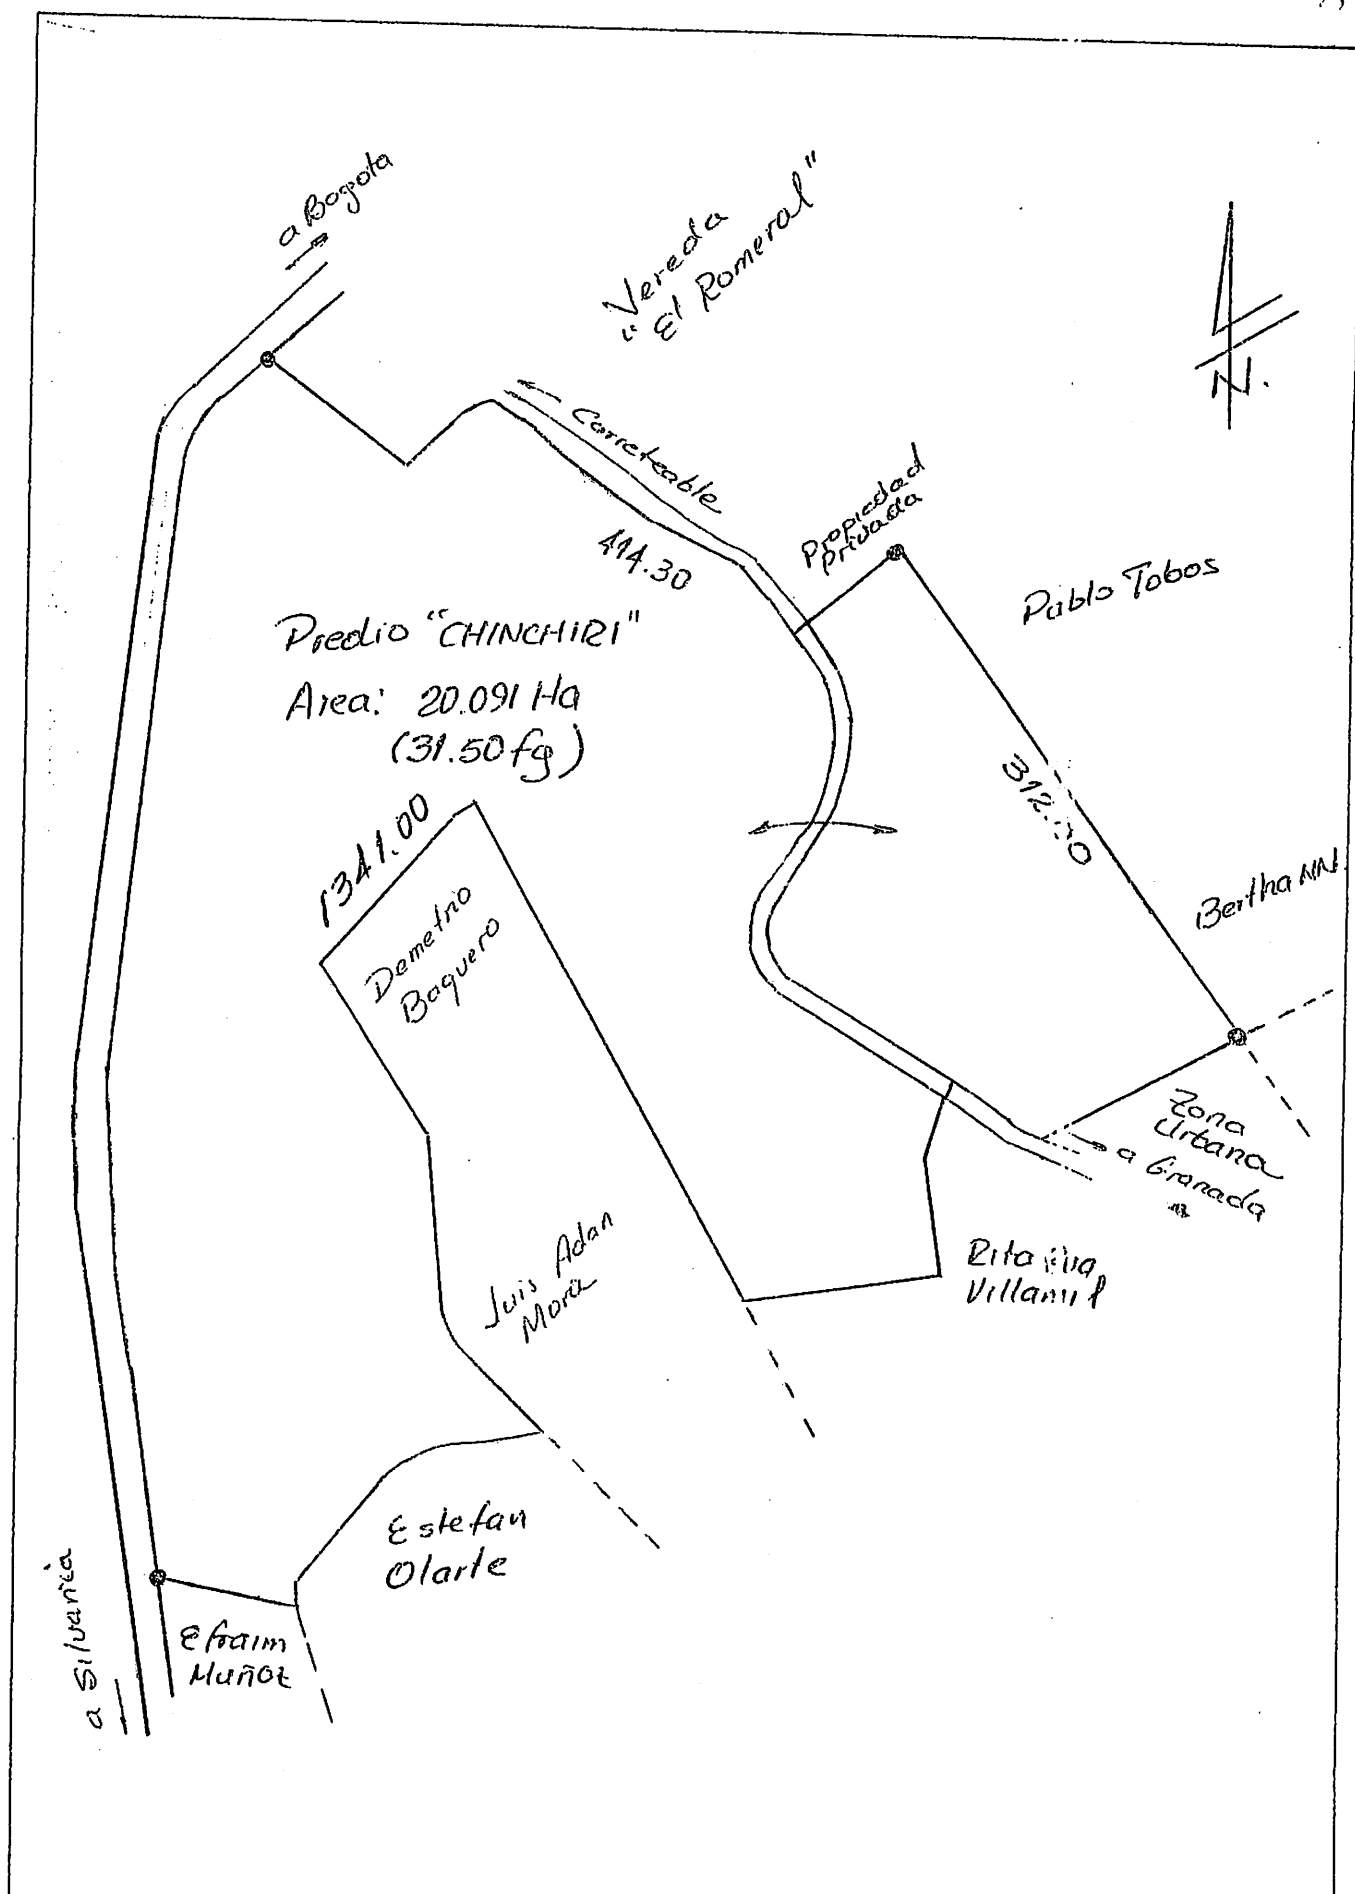 a Bogota
Vereda
"El Romeral"
N.
Carreteable
414.30
Propiedad
Privada
Pablo Tobos
Predio "CHINCHIRI"
Area: 20.091 Ha
(31.50 fg)
1341.00
Demetrio
Baquero
Bertha NN.
Zona
Urbana
a Granada
Luis Adan
Mora
Rita
Villamil
Estefan
Olarte
Efraim
Muñoz
a Silvania